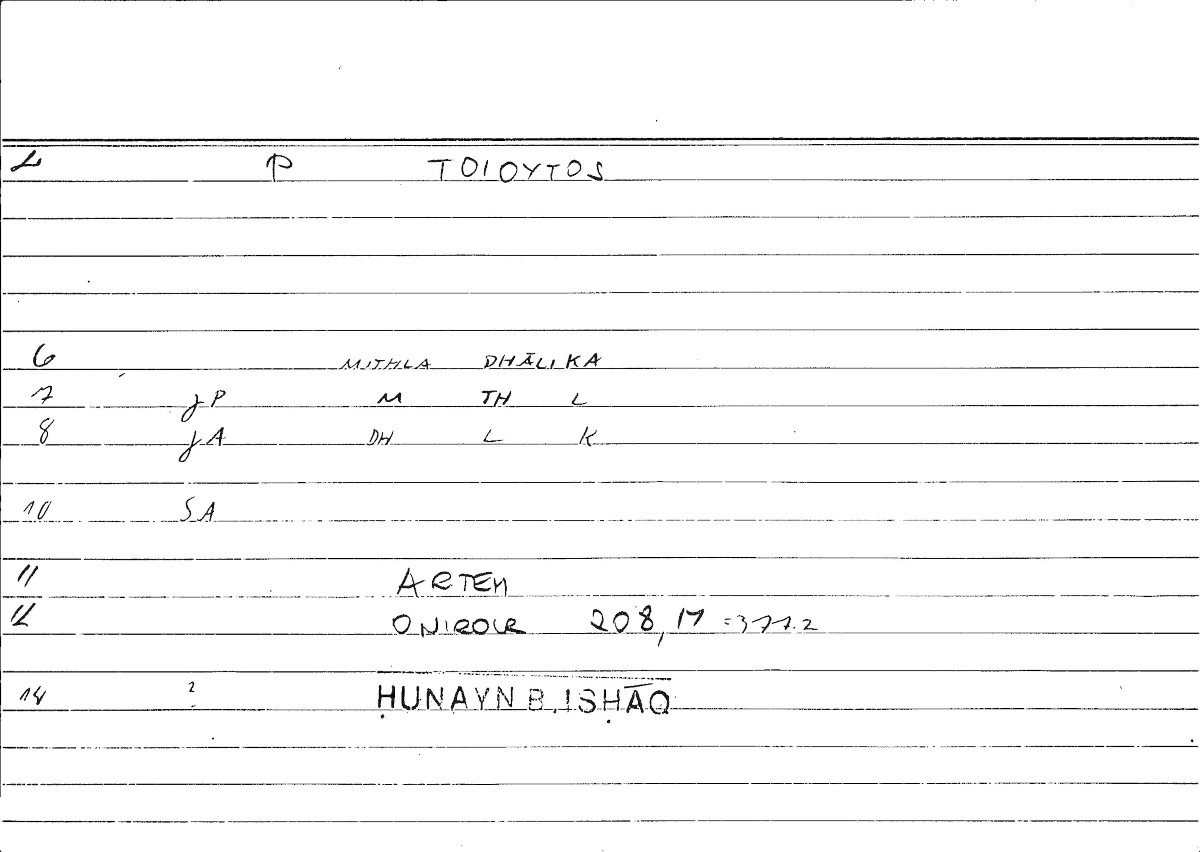 L P TOIOYTOS
6 MITHLA DHĀLIKA
7 JP M TH L
8 JA DH L K
10 SA
11 ARTEM
12 ONIROCR 208,17 =377.2
14 2 ḤUNAYN B. ISḤĀQ